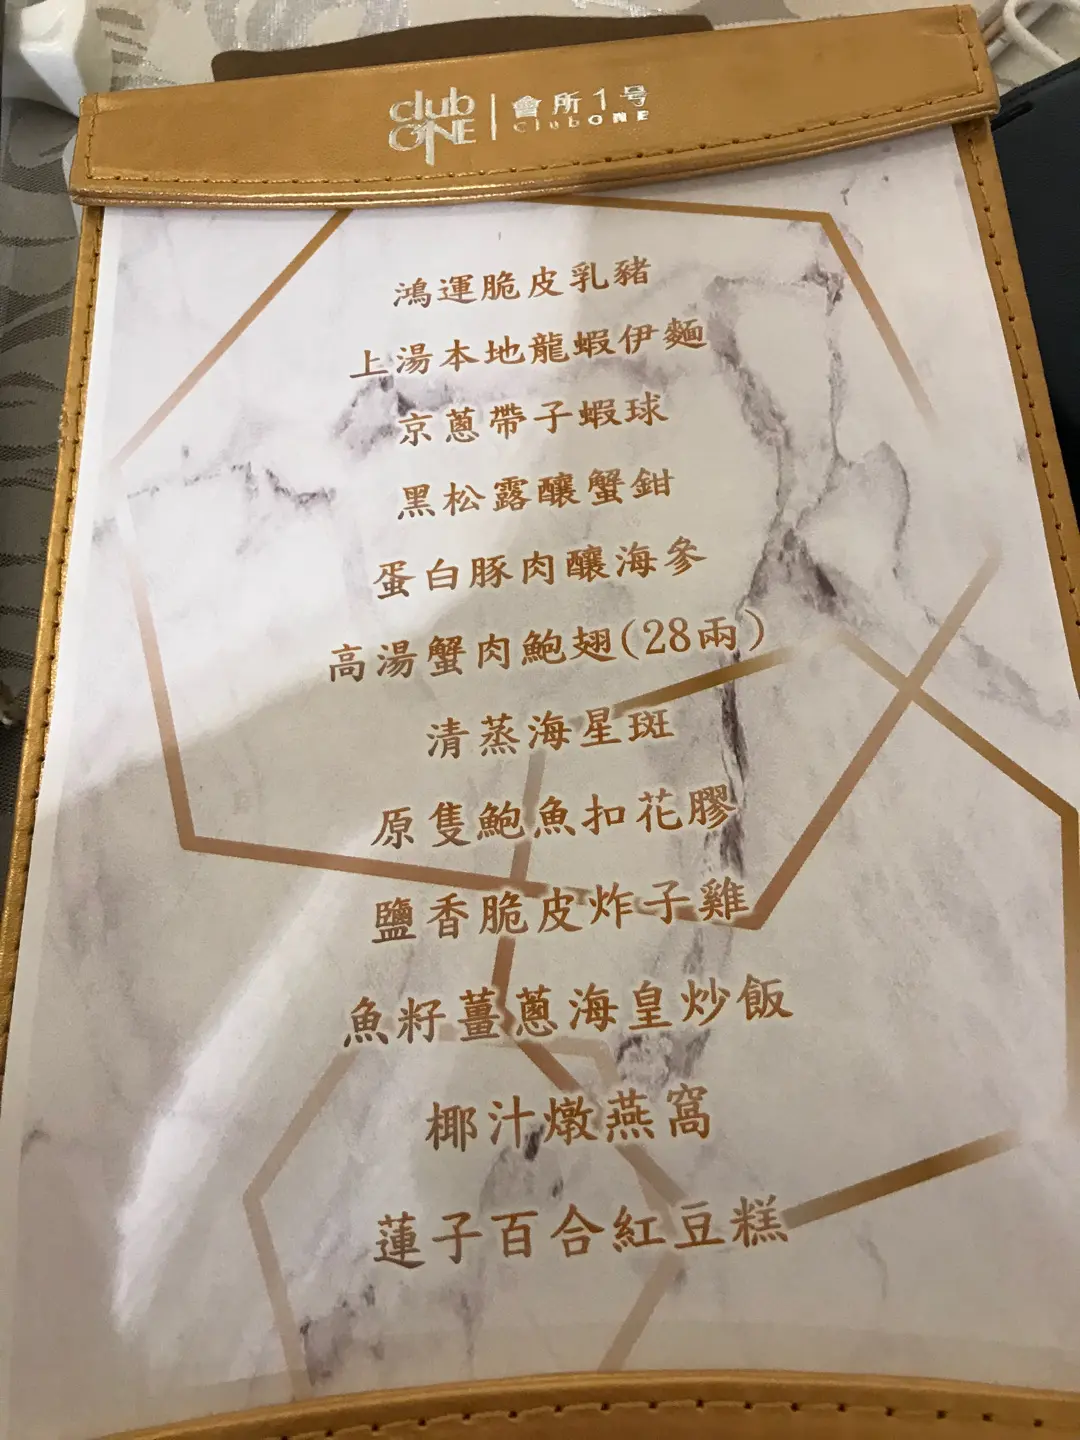 club ONE
會所1号
ClubONE
鴻運脆皮乳豬
上湯本地龍蝦伊麵
京蔥帶子蝦球
黑松露釀蟹鉗
蛋白豚肉釀海參
高湯蟹肉鮑翅(28兩)
清蒸海星斑
原隻鮑魚扣花膠
鹽香脆皮炸子雞
魚籽薑蔥海皇炒飯
椰汁燉燕窩
蓮子百合紅豆糕